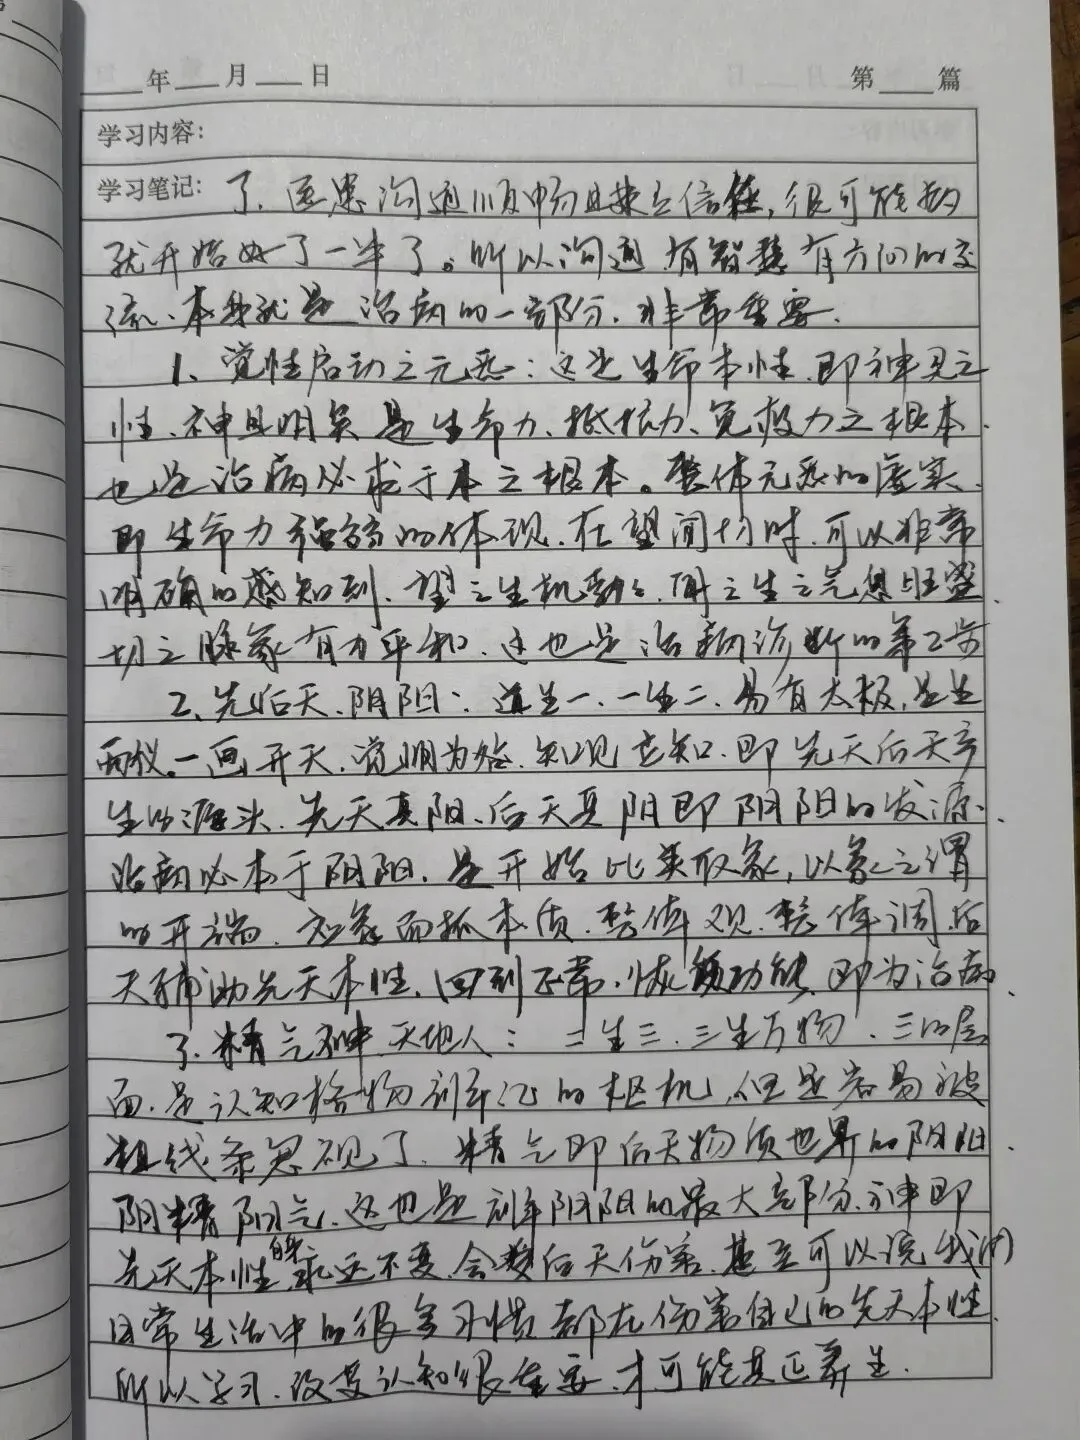 年 月 日 第 篇
学习内容:
学习笔记: 了、医患沟通顺畅且建立信任,很可能病
就开始好了一半了。所以沟通有智慧有方向的交
流、本身就是治病的一部分、非常重要.
1、觉性启动之元悉:这是生命本性、即神灵之
性、神且明矣是生命力、抵抗力、免疫力之根本、
也是治病必求于本之根本。整体元悉的虚实、
即生命力强弱的体现、在望闻切时、可以非常
明确的感知到、望之生机勃勃、闻之生之气息旺盛、
切之脉象有力平和、这也是治病诊断的第一步
2、先后天、阴阳:道生一、一生二、易有太极,是生
两仪。一画开天、觉明为咎、知见立知、即先天后天产
生的源头、先天真阳、后天真阴即阴阳的发源、
治病必本于阴阳、是开始比类取象,以象之谓
的开端、被象而抓本质、整体观、整体调、后
天辅助先天本性、回到正常、恢复功能、即为治病、
3、精气神、天地人:二生三、三生万物、三的层
面、是认知格物到辨证的枢机、但是容易被
粗线条忽视了、精气即后天物质世界的阴阳、
阴精阳气、这也是辨阴阳的最大部分、神即
先天本性虽永远不变、会被后天伤害、甚至可以说我们
日常生活中的很多习惯都在伤害自己的先天本性、
所以学习、改变认知很重要、才可能真正养生.